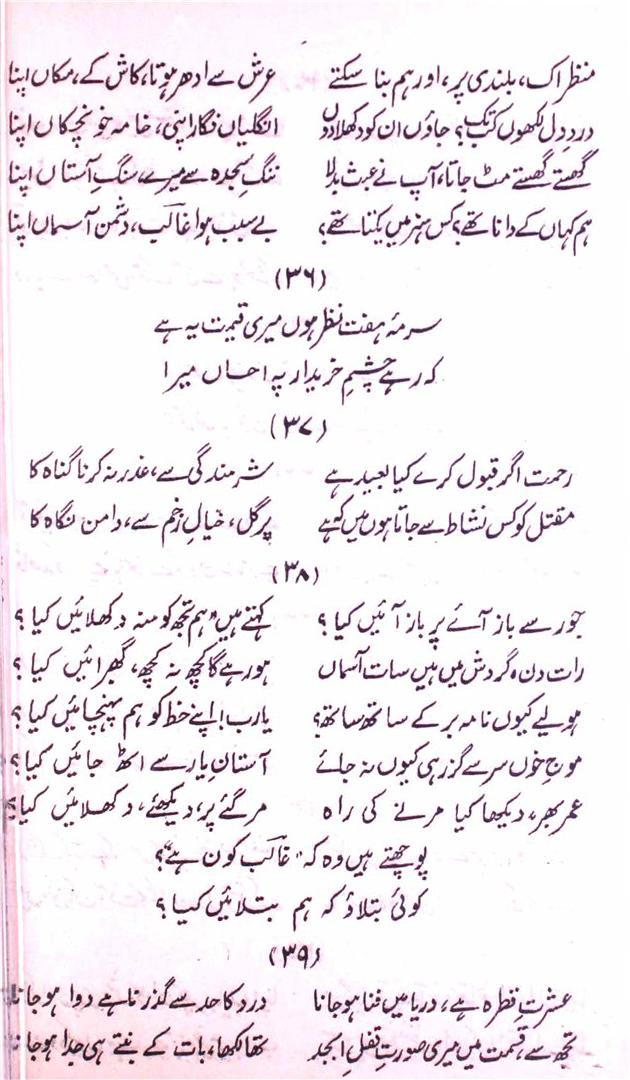 منظر اک، بلندی پر، اور ہم بنا سکتے عرش سے ادھر ہوتا، کاش کے، مکاں اپنا
دردِ دل لکھوں کب تک؟ جاؤں ان کو دکھلا دوں انگلیاں فگار اپنی، خامہ خونچکاں اپنا
گھستے گھستے مٹ جاتا، آپ نے عبث بدلا ننگِ سجدہ سے میرے، سنگِ آستاں اپنا
ہم کہاں کے دانا تھے؟ کس ہنر میں یکتا تھے؟ بے سبب ہوا غالب، دشمن آسماں اپنا
(۳۶)
سرمۂ مفت نظر ہوں میری قیمت یہ ہے
کہ رہے چشمِ خریدار پہ احساں میرا
(۳۷)
رحمت اگر قبول کرے کیا بعید ہے شرمندگی سے، عذر نہ کرنا گناہ کا
مقتل کو کس نشاط سے جاتا ہوں میں کہ ہے پرگل، خیالِ زخم سے، دامن نگاہ کا
(۳۸)
جور سے باز آئے پر باز آئیں کیا؟ کہتے ہیں "ہم تجھ کو منہ دکھلائیں کیا؟
رات دن، گردش میں ہیں سات آسماں ہو رہے گا کچھ نہ کچھ، گھبرائیں کیا؟
ہو لیے کیوں نامہ بر کے ساتھ ساتھ؟ یارب! اپنے خط کو ہم پہنچائیں کیا؟
موجِ خوں سر سے گزر ہی کیوں نہ جائے آستانِ یار سے اٹھ جائیں کیا؟
عمر بھر، دیکھا کیا مرنے کی راہ مر گئے پر، دیکھئے، دکھلائیں کیا؟
پوچھتے ہیں وہ کہ "غالب کون ہے"؟
کوئی بتلاؤ کہ ہم بتلائیں کیا؟
(۳۹)
عشرتِ قطرہ ہے، دریا میں فنا ہو جانا درد کا حد سے گذرنا ہے دوا ہو جانا
تجھ سے، قسمت میں میری صورتِ قفلِ ابجد تھا لکھا، بات کے بنتے ہی جدا ہو جانا